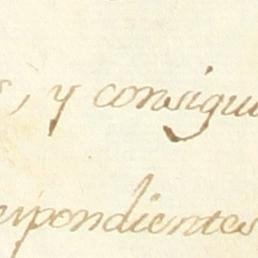 , y consigui
espondientes